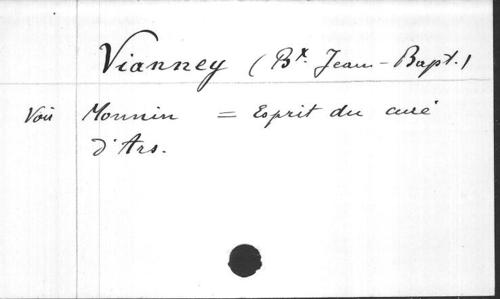 Vianney (Bx. Jean-Bapt.)
Voir Monnin = Esprit du curé
d'Ars.